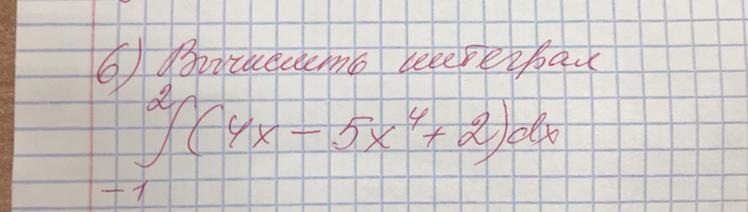 6) Вычислить интеграл
2
∫(4x − 5x⁴ + 2)dx
−1